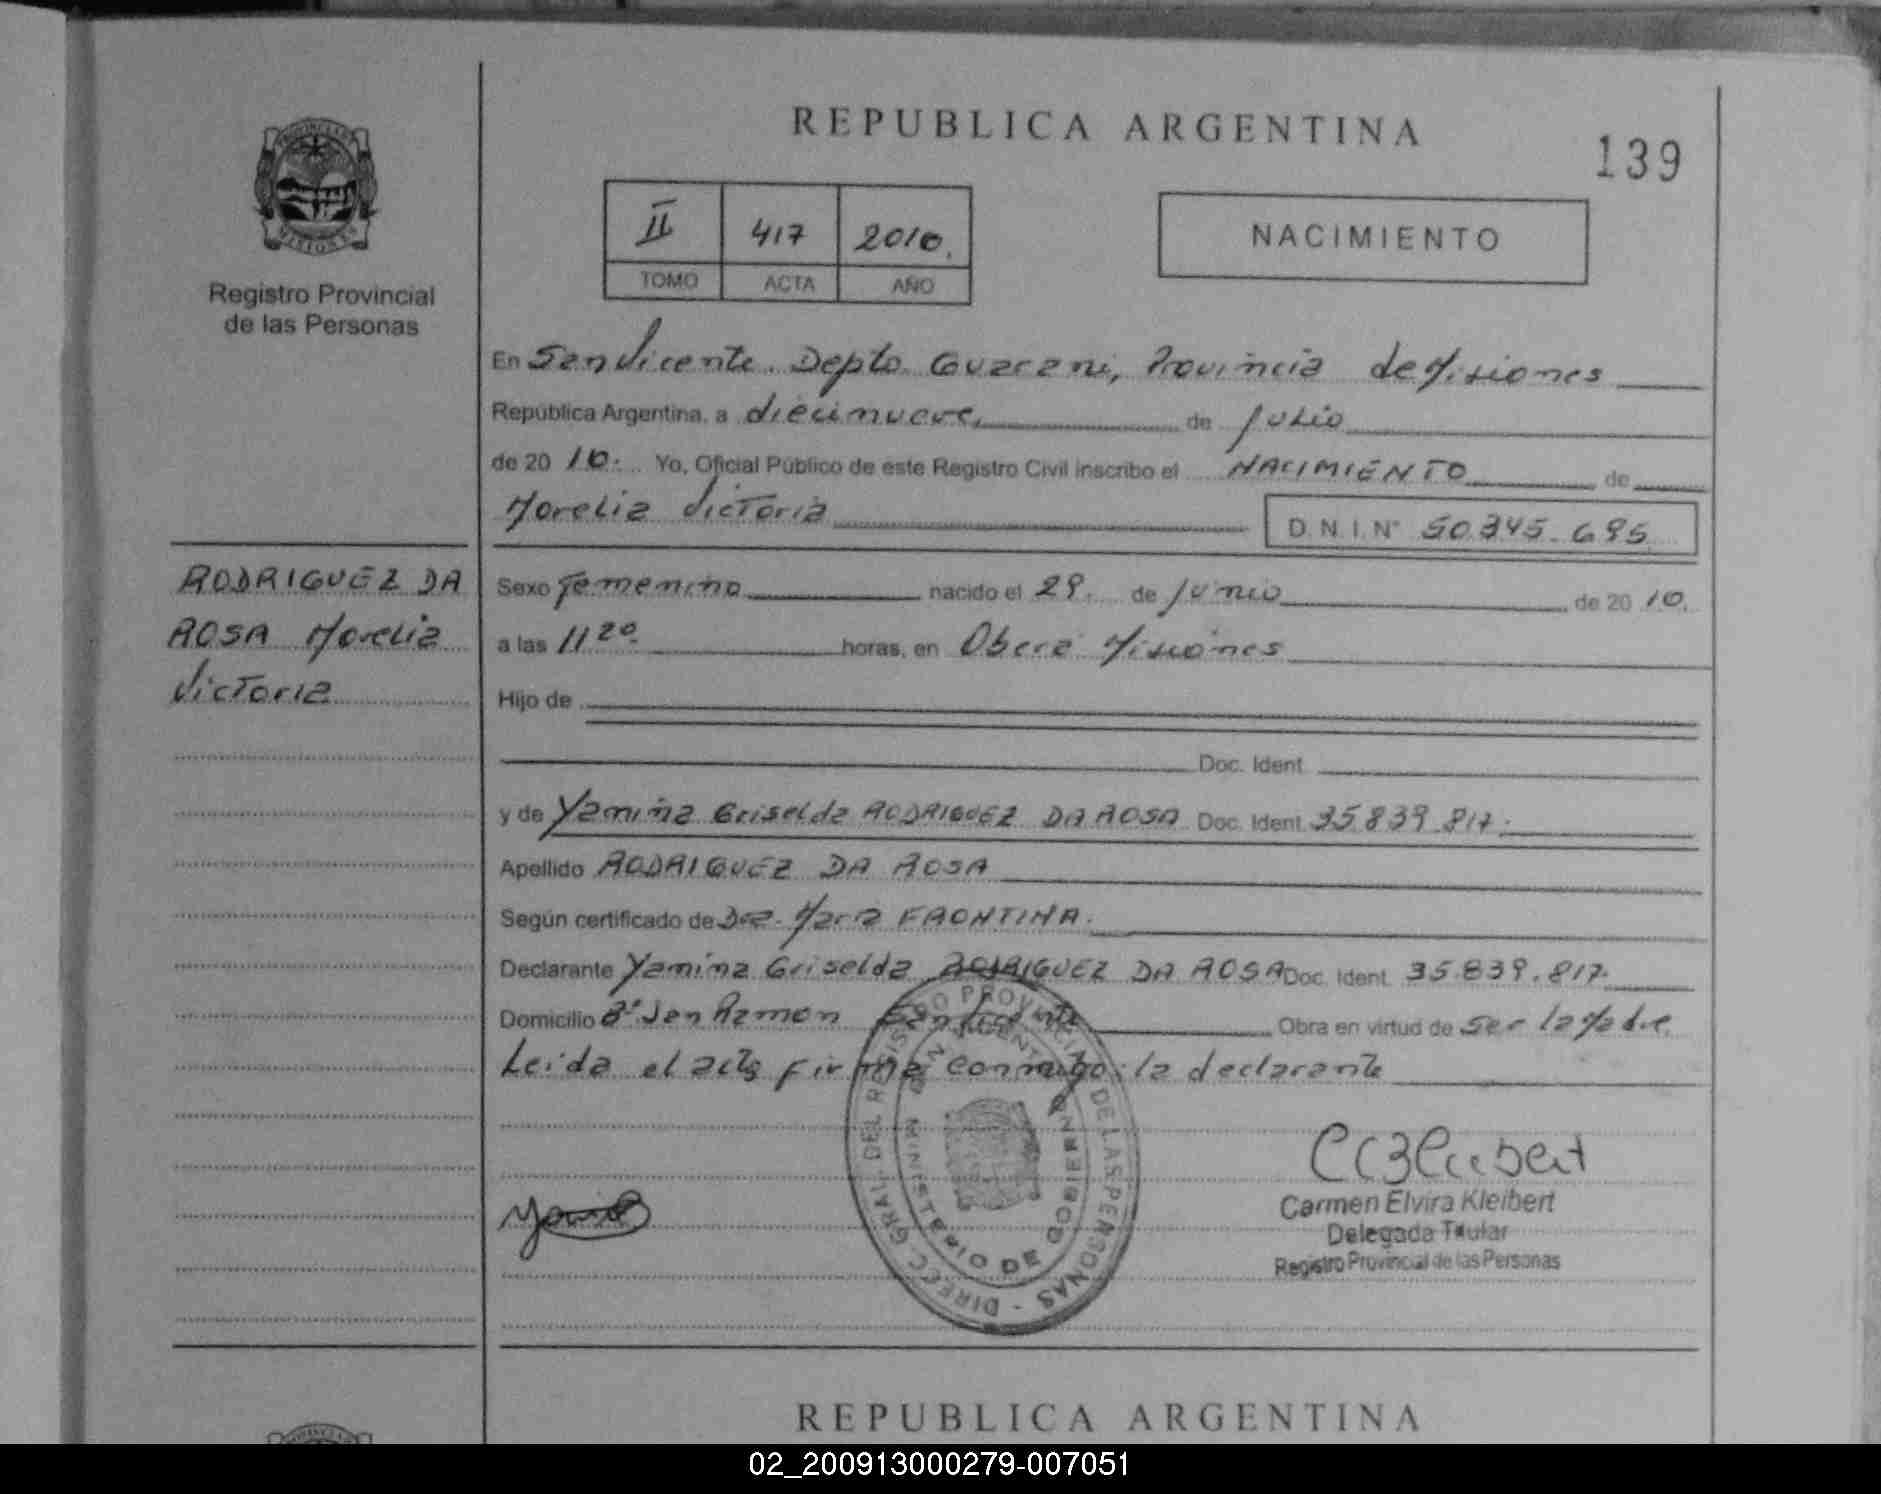 REPUBLICA ARGENTINA
139
PROVINCIA DE
MISIONES
Registro Provincial
de las Personas
II 417 2010.
TOMO ACTA AÑO
NACIMIENTO
En San Vicente. Depto. Guarani, Provincia de Misiones
República Argentina, a diecinueve, de Julio
de 20 10. Yo, Oficial Público de este Registro Civil inscribo el NACIMIENTO de
Morelia Victoria
D.N.I. Nº 50.345.695
RODRIGUEZ DA
ROSA Morelia
Victoria
Sexo Femenino nacido el 29. de Junio de 20 10.
a las 11 20. horas, en Obera Misiones
Hijo de
Doc. Ident.
y de Yamina Griselda RODRIGUEZ DA ROSA Doc. Ident. 35.839.817.
Apellido RODRIGUEZ DA ROSA
Según certificado de Dra. Maria FRONTINA.
Declarante Yamina Griselda RODRIGUEZ DA ROSA Doc. Ident. 35.839.817.
Domicilio Bº San Ramon San Vicente Obra en virtud de ser la Madre.
Leida el acta firma conmigo la declarante
DIRECC. GRAL. DEL REGISTRO PROVINCIAL DE LAS PERSONAS -
MINISTERIO DE GOBIERNO
Carmen Elvira Kleibert
Delegada Titular
Registro Provincial de las Personas
REPUBLICA ARGENTINA
02_200913000279-007051